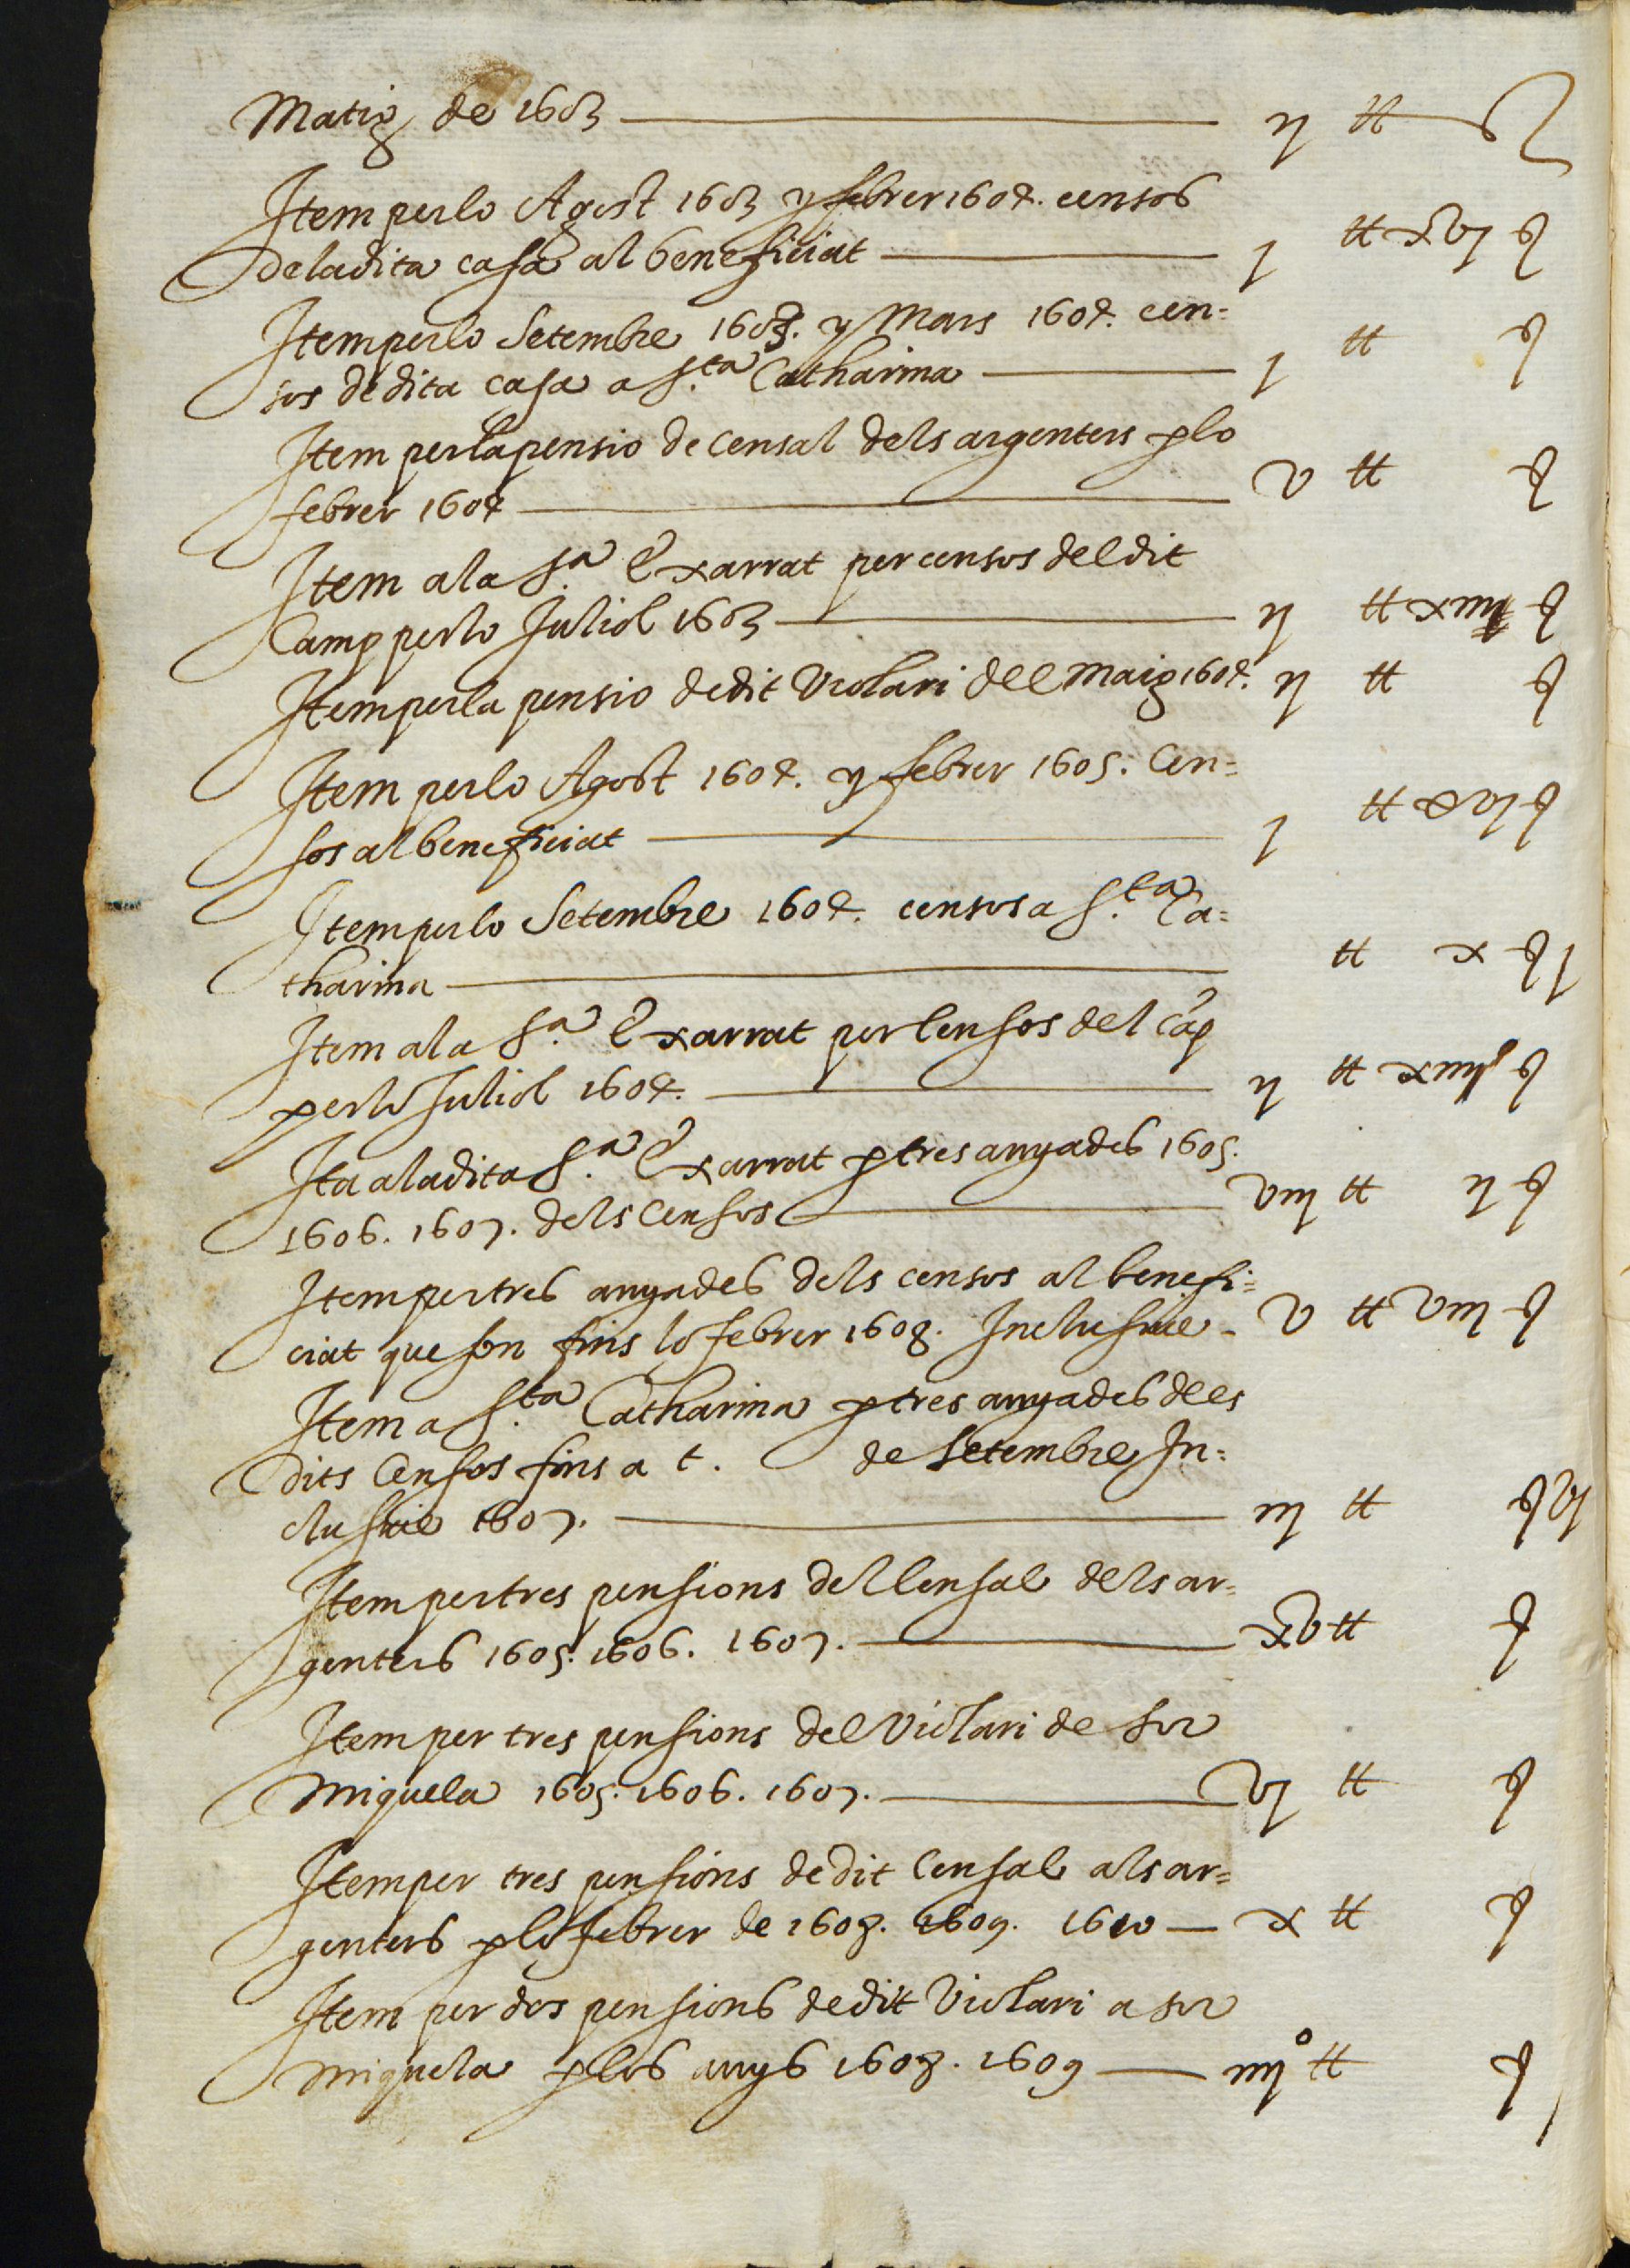 Matig de 1603 ——— ij ₶
Item perlo Agost 1603 y febrer 1604. censos
deladita casa al beneficiat ——— j ₶ xvj ß
Item perlo Setembre 1603. y Mars 1604. cen=
sos de dita casa a S.ta Catharina ——— j ₶ ß
Item perla pensio de Censal dels argenters plo
febrer 1604 ——— v ₶ ß
Item ala S.a Exarrat per censos del dit
Camp perlo Juliol 1603 ——— ij ₶ ß
Item perla pensio de dit Violari del Maig 1604. ij ₶ ß
Item perlo Agost 1604. y febrer 1605. Cen=
sos al beneficiat ——— j ₶ ß
Item perlo Setembre 1604. censos a S.ta Ca=
tharina ——— ₶ x ß
Item ala S.a Exarrat per Censos del Cāp
perlo Juliol 1604. ——— ij ₶ ß
Ita aladita S.a Exarrat p tres anyades 1605.
1606. 1607. dels Censos ——— viij ₶ ij ß
Item per tres anyades dels censos al benefi=
ciat que son fins lo febrer 1608. Inclusiue - v ₶ viij ß
Item a S.ta Catharina p tres anyades dels
dits Censos fins a t. de Setembre In=
clusiue 1607. ——— iij ₶ ß
Item per tres pensions del Censal dels ar=
genters 1605. 1606. 1607. ——— xv ₶ ß
Item per tres pensions del Violari de sor
Miquela 1605. 1606. 1607. ——— vj ₶ ß
Item per tres pensions de dit Censal als ar=
genters plo febrer de 1608. 1609. 1610 — x ₶ ß
Item per dos pensions de dit Violari a sor
Miquela plos anys 1608. 1609 —— iiijº ₶ ß